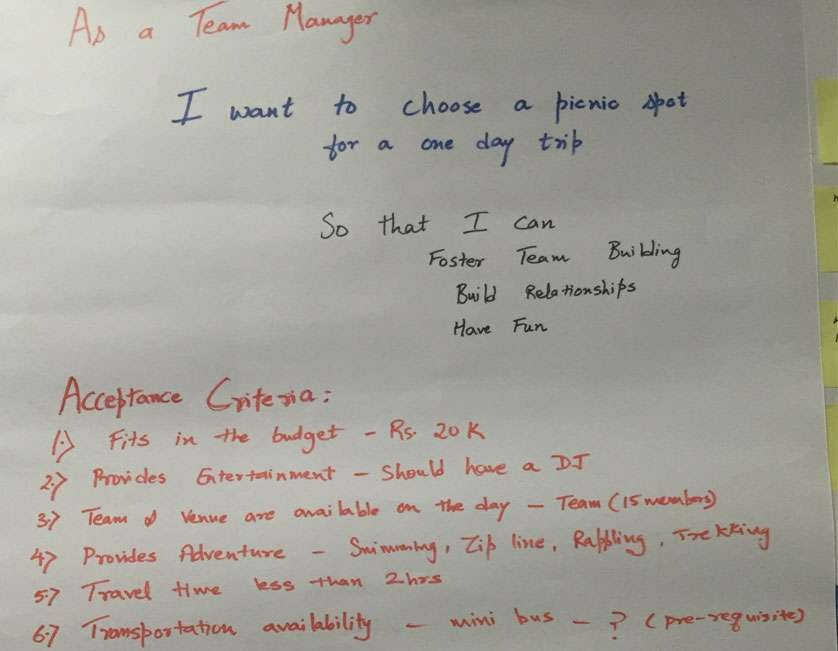 As a Team Manager
I want to choose a picnic spot
for a one day trip
So that I can
Foster Team Building
Build Relationships
Have Fun
Acceptance Criteria:
1.) Fits in the budget - Rs. 20K
2.) Provides Entertainment - Should have a DJ
3.) Team & Venue are available on the day - Team (15 members)
4.) Provides Adventure - Swimming, Zip line, Rappling, Trekking
5.) Travel time less than 2hrs
6.) Transportation availability - mini bus - ? (pre-requisite)